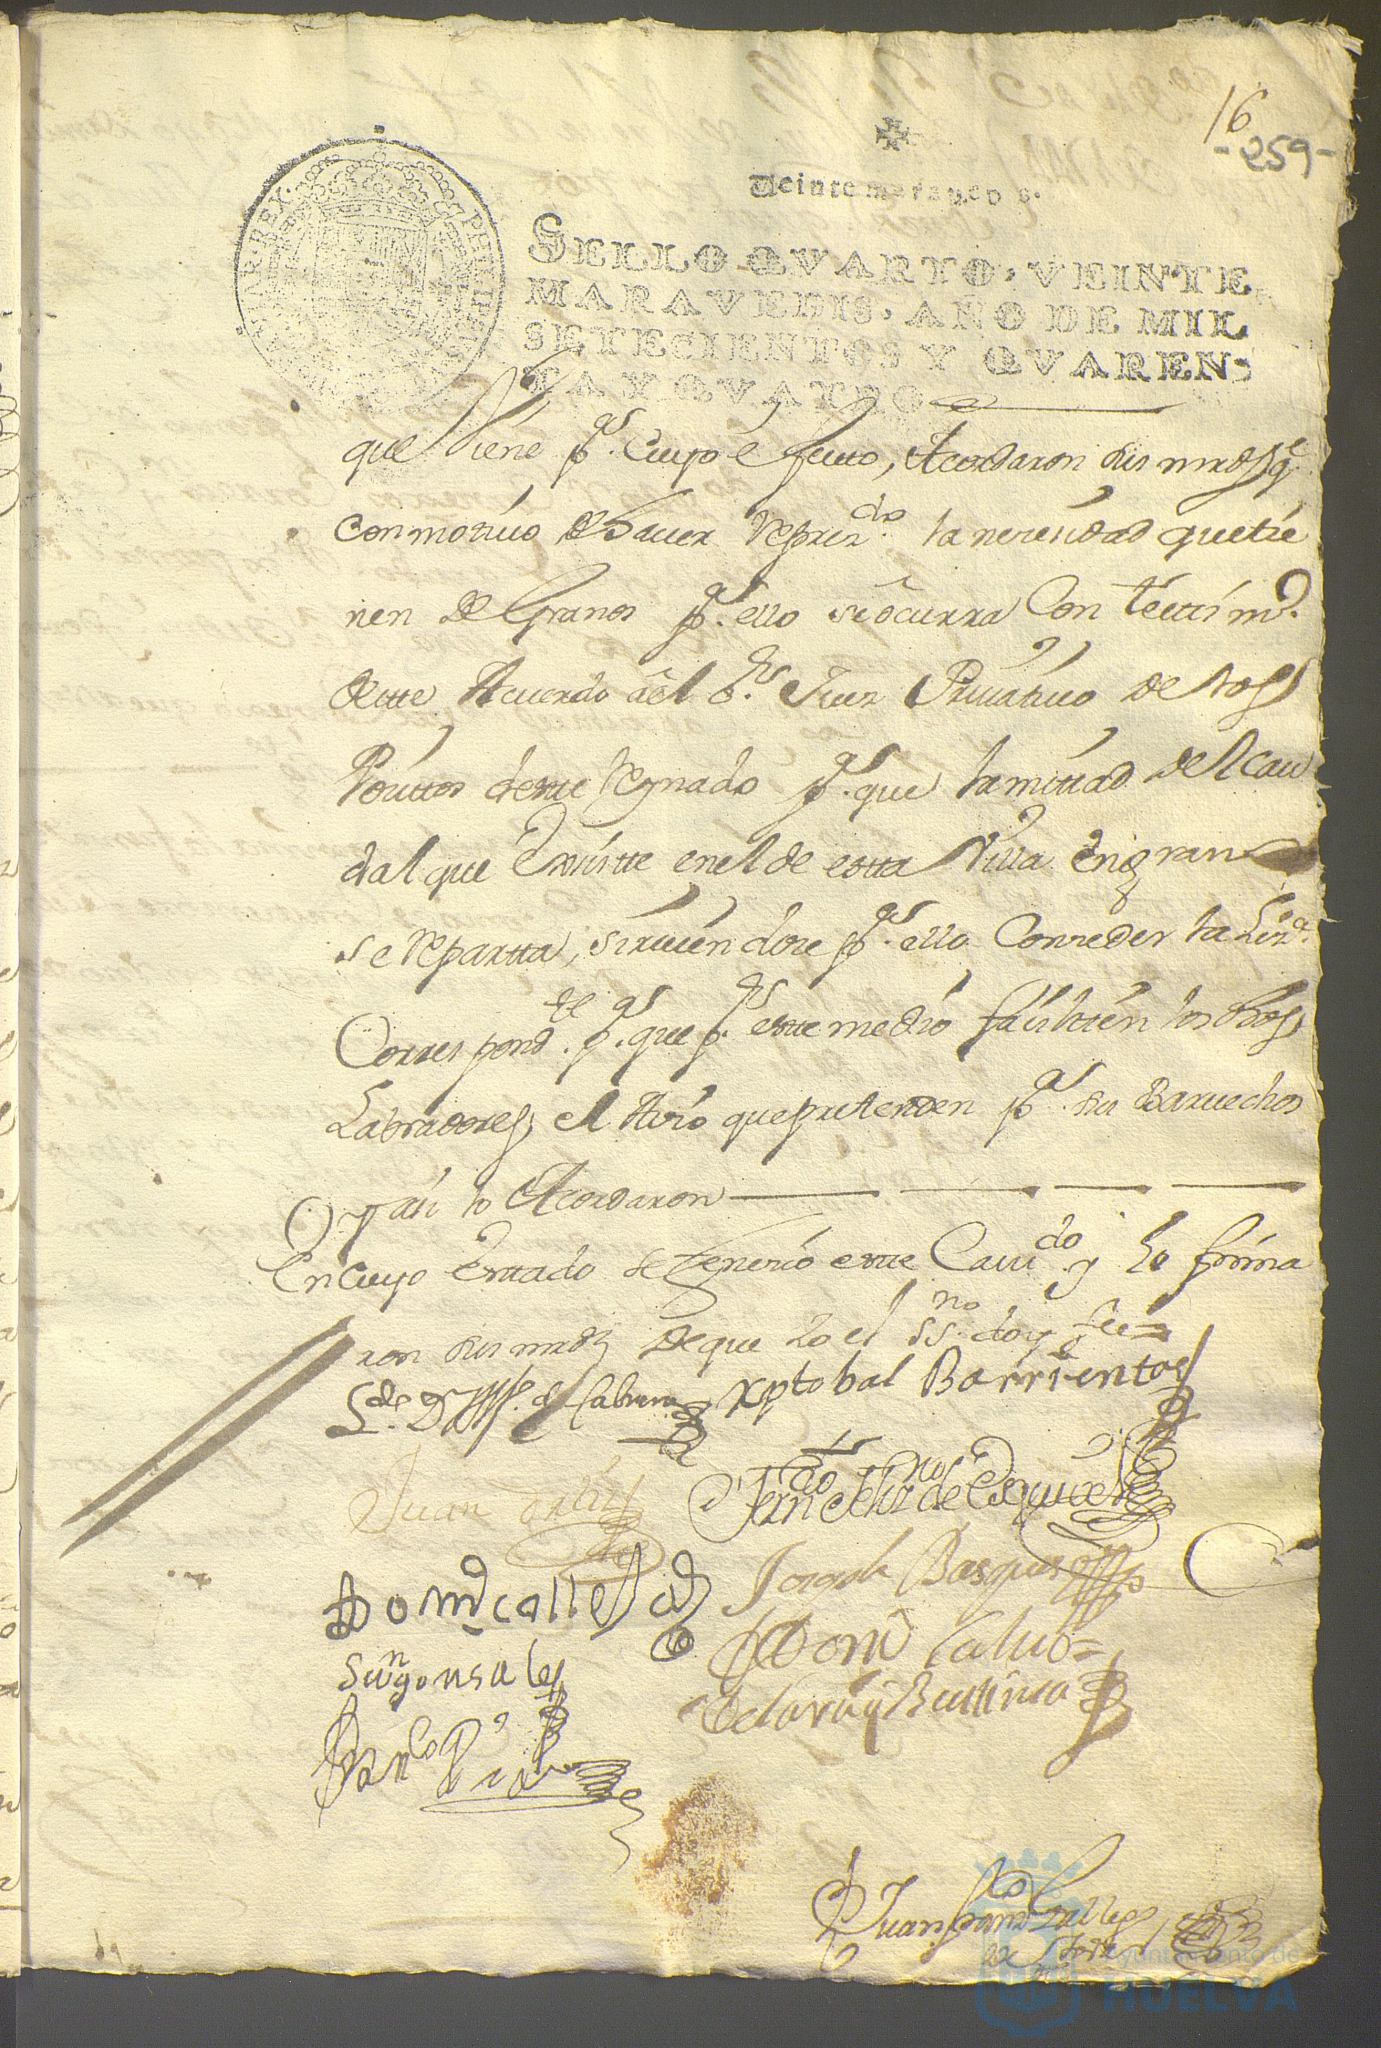 16
-259-
Veinte maravedis.
SELLO QVARTO, VEINTE
MARAVEDIS, AÑO DE MIL
SETECIENTOS Y QVAREN-
TA Y QVATRO
que tiene pª. Cuyo efecto, Acordaron sus mrds qe
con motiuo de hauer Represdo. la neresidad que tie
nen de Granos pª. ello se ocurra Con testimº.
de este Acuerdo al Sr. Juez Priuatiuo de los
Positos de este Reynado pª. que la mitad del Cau
dal que Existte en el de esta Villa en gran
se Reparta, siruiendose pª. ello Conceder la Lizª.
Correspondte. pª. que pr. este medio faciliten los dhos
Labradores el Avio que pretenden pª. sus Baruechos
y asi lo Acordaron
En cuyo estado se fenecio este Cauido y lo firma
ron sus mrds de que Yo el ssno. doy fee=
Lde. Dn de Cabrera
Xptobal Barrientos
Juan Ortis
Ferndo de Esquivel
Domº calle
Joseph Basques
Sn gonsales
Domº Caluo=
Franco
Juan Gallegos
Ayuntamiento de
HUELVA